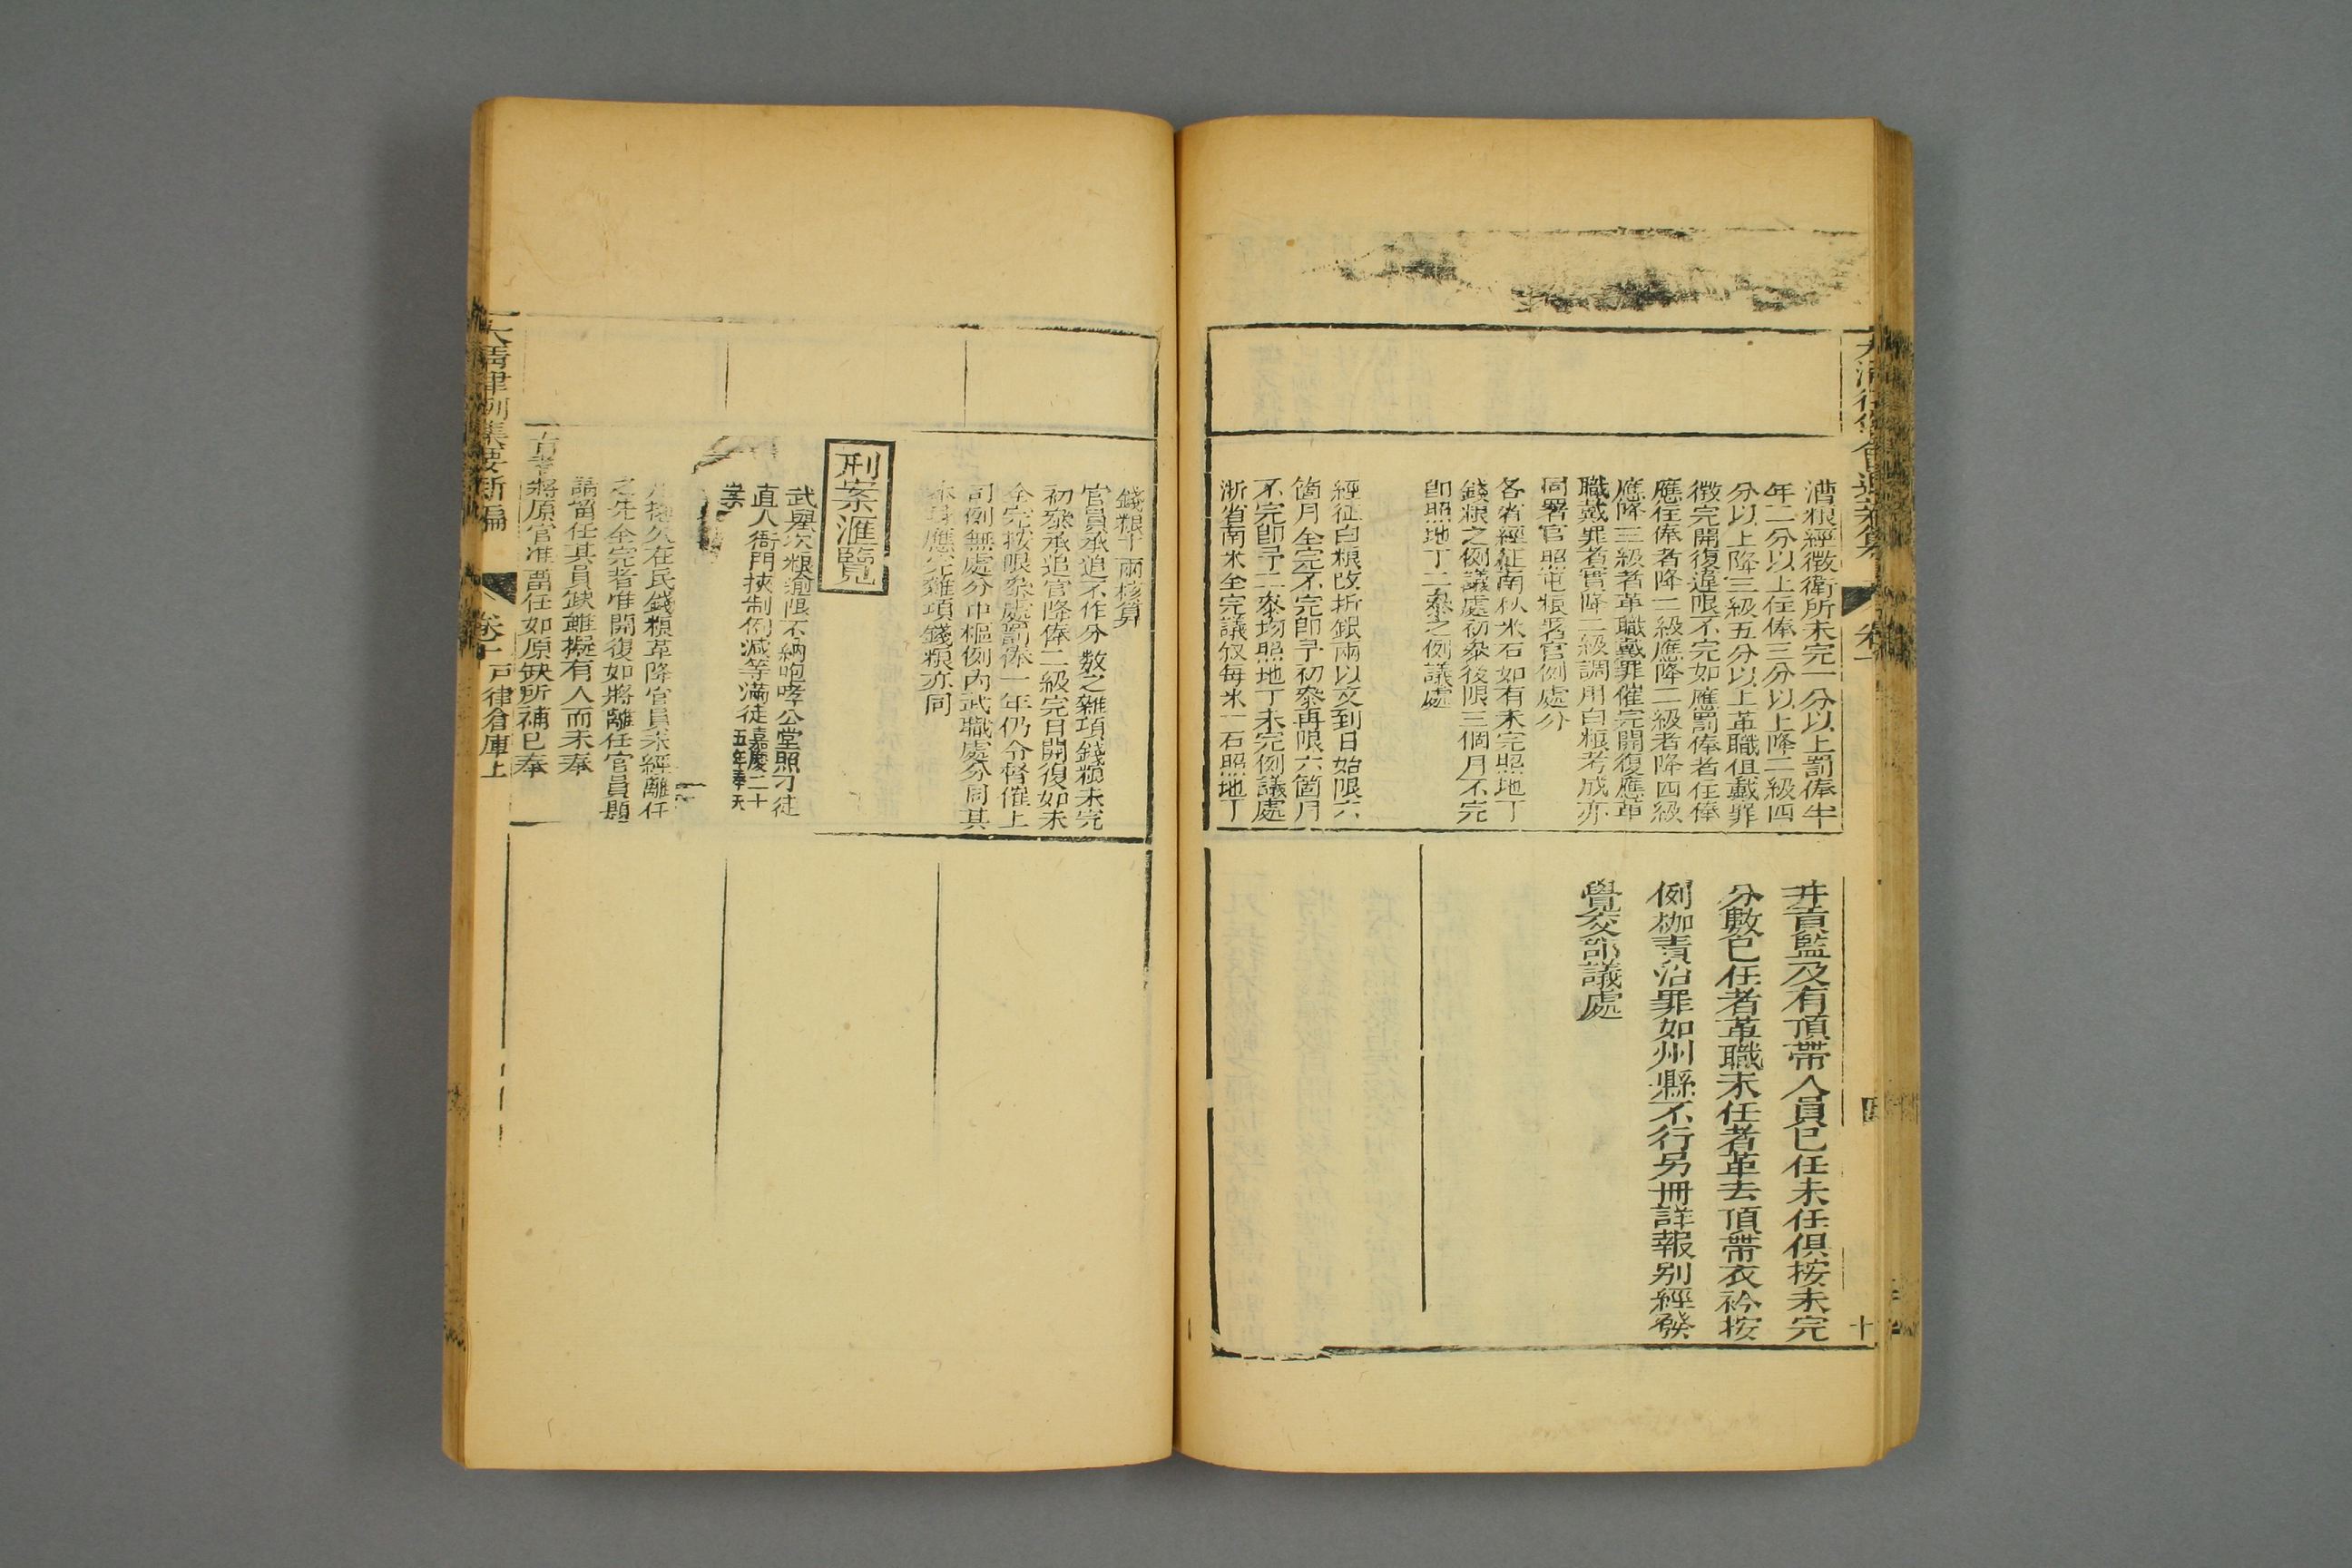 漕粮經徵衛所未完一分以上罰俸半
年二分以上住俸三分以上降二級四
分以上降三級五分以上革職俱戴罪
徵完開復違限不完如應罰俸者住俸
應住俸者降二級應降二級者降四級
應降三級者革職戴罪催完開復應革
職戴罪者實降二級調用白粮考成亦
同署官照屯粮署官例處分
各省經征南秋米石如有未完照地丁
錢粮之例議處初叅後限三個月不完
卽照地丁二叅之例議處
經征白粮改折銀兩以文到日始限六
箇月全完不完卽予初叅再限六箇月
不完卽予二叅均照地丁未完例議處
浙省南米全完議敘每米一石照地丁
并貢監及有頂帶人員已任未任俱按未完
分數已任者革職未任者革去頂帶衣衿按
例枷責治罪如州縣不行另冊詳報别經發
覺交部議處
十
錢粮十兩核算
官員承追不作分數之雜項錢粮未完
初叅承追官降俸二級完日開復如未
全完按限叅處罰俸一年仍令督催上
司例無處分中樞例內武職處分同其
本身應完雜項錢粮亦同
刑案滙覽
武舉欠粮逾限不納咆哮公堂照刁徒
直入衙門挾制例減等滿徒嘉慶二十五年奉天
案
久在民錢粮革降官員未經離任
之先全完者准開復如將離任官員題
請留任其員缺雖擬有人而未奉
㫖者將原官准畱任如原缺所補已奉
大清律例集要新編 卷十 戸律倉庫上